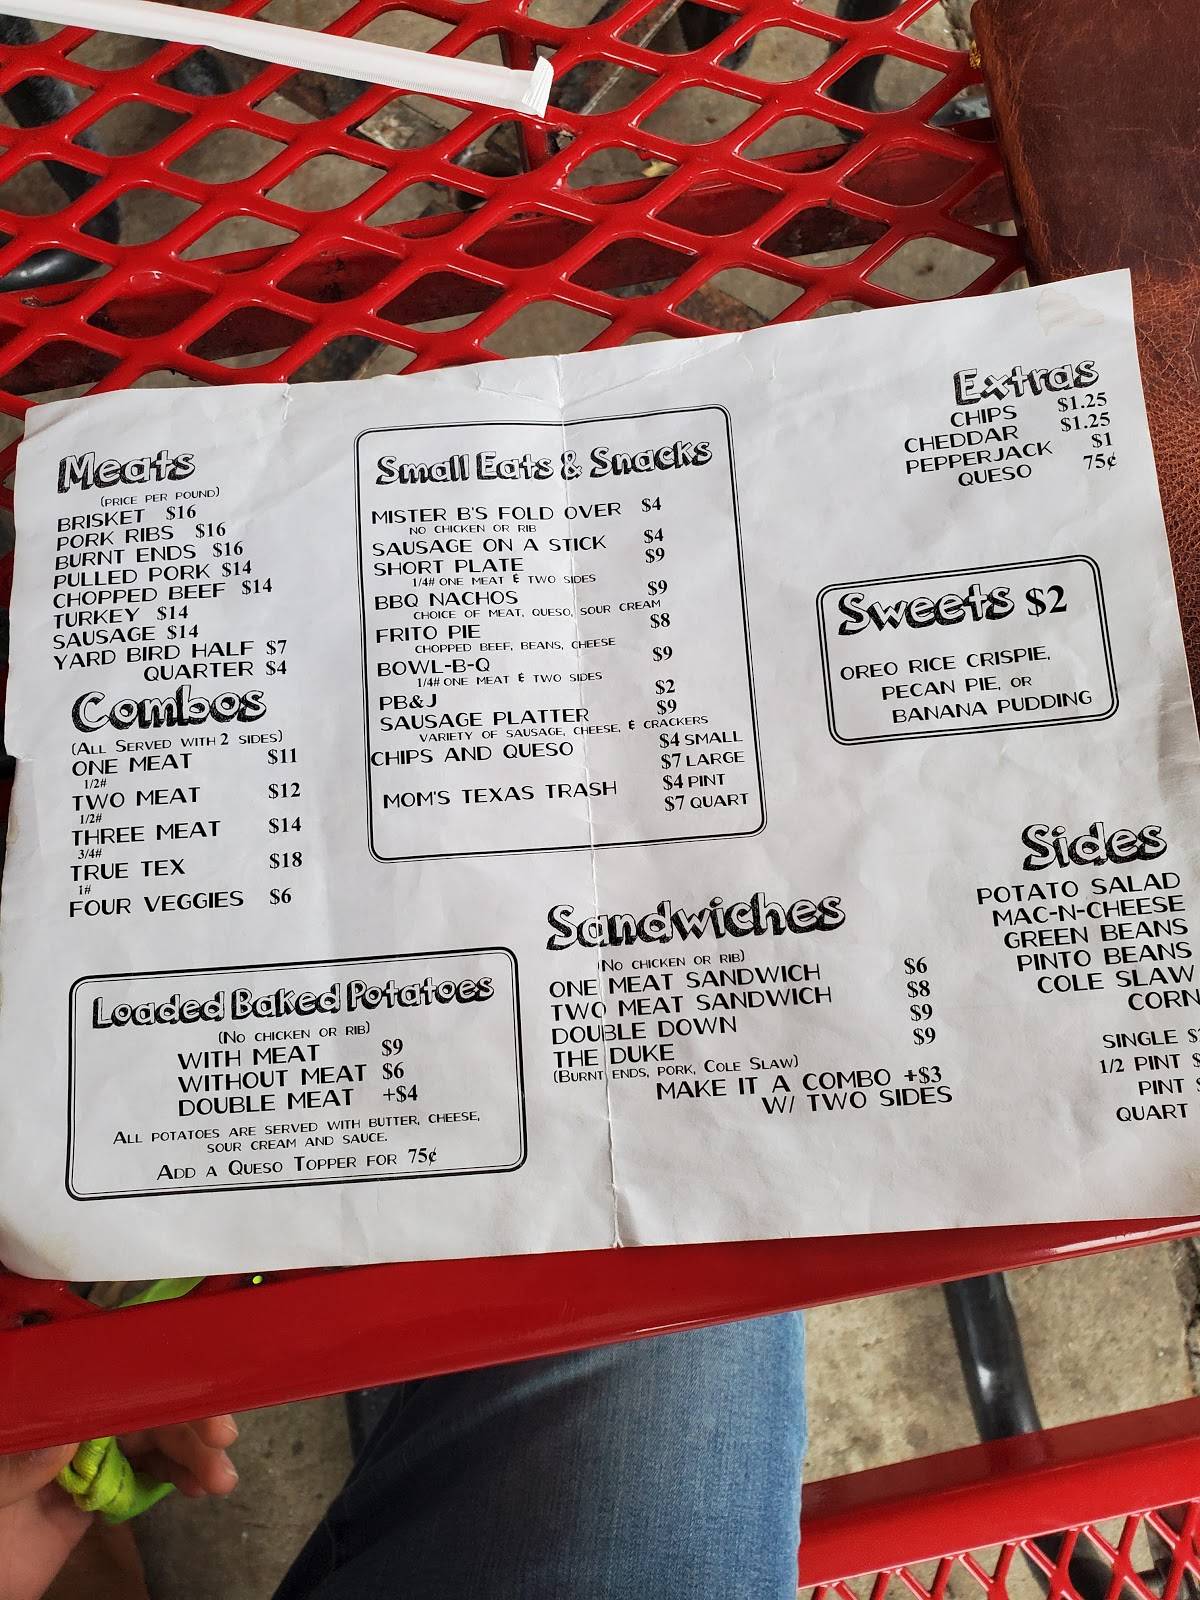 Meats
(PRICE PER POUND)
BRISKET $16
PORK RIBS $16
BURNT ENDS $16
PULLED PORK $14
CHOPPED BEEF $14
TURKEY $14
SAUSAGE $14
YARD BIRD HALF $7
QUARTER $4
Combos
(ALL SERVED WITH 2 SIDES)
ONE MEAT $11
1/2#
TWO MEAT $12
1/2#
THREE MEAT $14
3/4#
TRUE TEX $18
1#
FOUR VEGGIES $6
Loaded Baked Potatoes
(NO CHICKEN OR RIB)
WITH MEAT $9
WITHOUT MEAT $6
DOUBLE MEAT +$4
ALL POTATOES ARE SERVED WITH BUTTER, CHEESE,
SOUR CREAM AND SAUCE.
ADD A QUESO TOPPER FOR 75¢
Small Eats & Snacks
MISTER B'S FOLD OVER $4
NO CHICKEN OR RIB
SAUSAGE ON A STICK $4
SHORT PLATE $9
1/4# ONE MEAT & TWO SIDES
BBQ NACHOS $9
CHOICE OF MEAT, QUESO, SOUR CREAM
FRITO PIE $8
CHOPPED BEEF, BEANS, CHEESE
BOWL-B-Q $9
1/4# ONE MEAT & TWO SIDES
PB&J $2
SAUSAGE PLATTER $9
VARIETY OF SAUSAGE, CHEESE, & CRACKERS
CHIPS AND QUESO $4 SMALL
$7 LARGE
MOM'S TEXAS TRASH $4 PINT
$7 QUART
Sandwiches
(NO CHICKEN OR RIB)
ONE MEAT SANDWICH $6
TWO MEAT SANDWICH $8
DOUBLE DOWN $9
THE DUKE $9
(BURNT ENDS, PORK, COLE SLAW)
MAKE IT A COMBO +$3
W/ TWO SIDES
Extras
CHIPS $1.25
CHEDDAR $1.25
PEPPERJACK $1
QUESO 75¢
Sweets $2
OREO RICE CRISPIE,
PECAN PIE, OR
BANANA PUDDING
Sides
POTATO SALAD
MAC-N-CHEESE
GREEN BEANS
PINTO BEANS
COLE SLAW
CORN
SINGLE
1/2 PINT
PINT
QUART